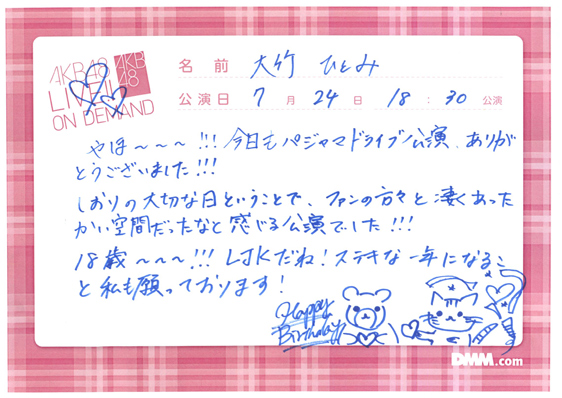 AKB48
LIVE!!
ON DEMAND
AKB
48
名前 大竹 ひとみ
公演日 7月24日 18:30公演
やほ〜〜〜!!! 今日もパジャマドライブ公演、ありが
とうございました!!!
しおりの大切な日ということで、ファンの方々と凄くあった
かい空間だったなと感じる公演でした!!!
18歳〜〜〜!!! LJKだね!ステキな一年になるこ
と私も願っております!
Happy
Birthday!!
DMM.com